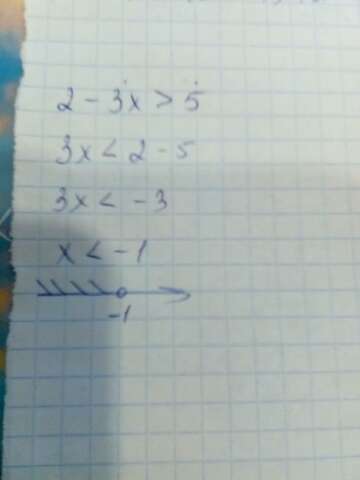 2 - 3x > 5
3x < 2 - 5
3x < -3
x < -1
-1